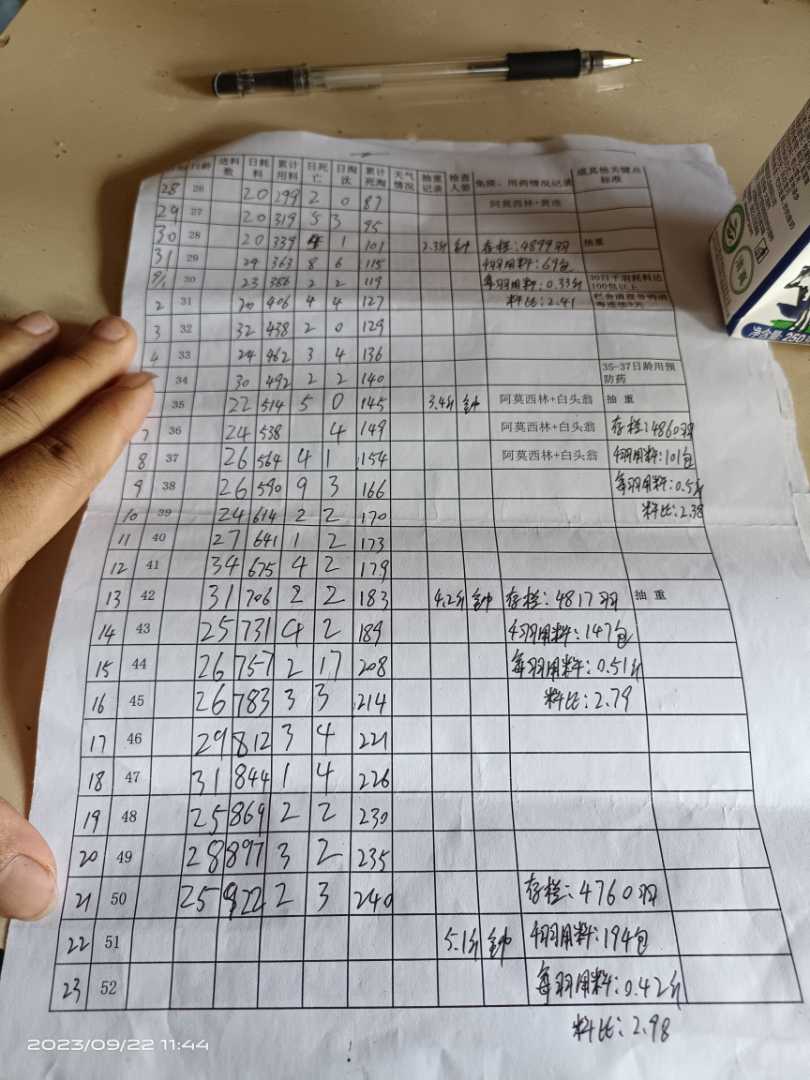 日龄 进料数 日耗料 累计用料 日死亡 日淘汰 累计死淘 天气情况 抽重记录 检查人签 免疫、用药情况记录 或其他关键点标准
28 26 20 299 2 0 87 阿莫西林+黄连
29 27 20 319 5 3 95
30 28 20 339 4 1 101 2.3斤 钟 存栏:4899羽 抽重
31 29 24 363 8 6 115 千羽用料:69包
9/1 30 23 386 2 2 119 每羽用料:0.33斤 30日千羽耗料达100包以上
2 31 20 406 4 4 127 料比:2.41
3 32 32 438 2 0 129
4 33 24 462 3 4 136
34 30 492 2 2 140 35-37日龄用预防药
35 22 514 5 0 145 3.4斤 钟 阿莫西林+白头翁 抽重
7 36 24 538 4 149 阿莫西林+白头翁 存栏:4860羽
8 37 26 564 4 1 154 阿莫西林+白头翁 千羽用料:101包
9 38 26 590 9 3 166 每羽用料:0.5斤
10 39 24 614 2 2 170 料比:2.38
11 40 27 641 1 2 173
12 41 34 675 4 2 179
13 42 31 706 2 2 183 4.2斤 钟 存栏:4817羽 抽重
14 43 25 731 4 2 189 千羽用料:147包
15 44 26 757 2 17 208 每羽用料:0.51斤
16 45 26 783 3 3 214 料比:2.79
17 46 29 812 3 4 221
18 47 31 844 1 4 226
19 48 25 869 2 2 230
20 49 28 897 3 2 235
21 50 25 922 2 3 240 存栏:4760羽
22 51 5.1斤 钟 千羽用料:194包
23 52 每羽用料:0.42斤
料比:2.98
2023/09/22 11:44
净含量:250